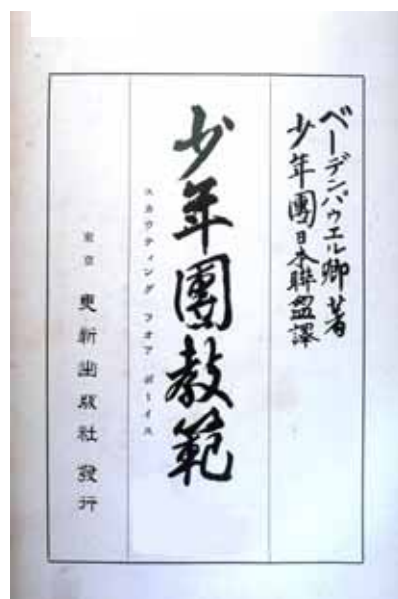 ベーデンパウエル卿著
少年團日本聯盟譯
少年團教範
スカウティング フオア ボーイス
東京 更新出版社 發行